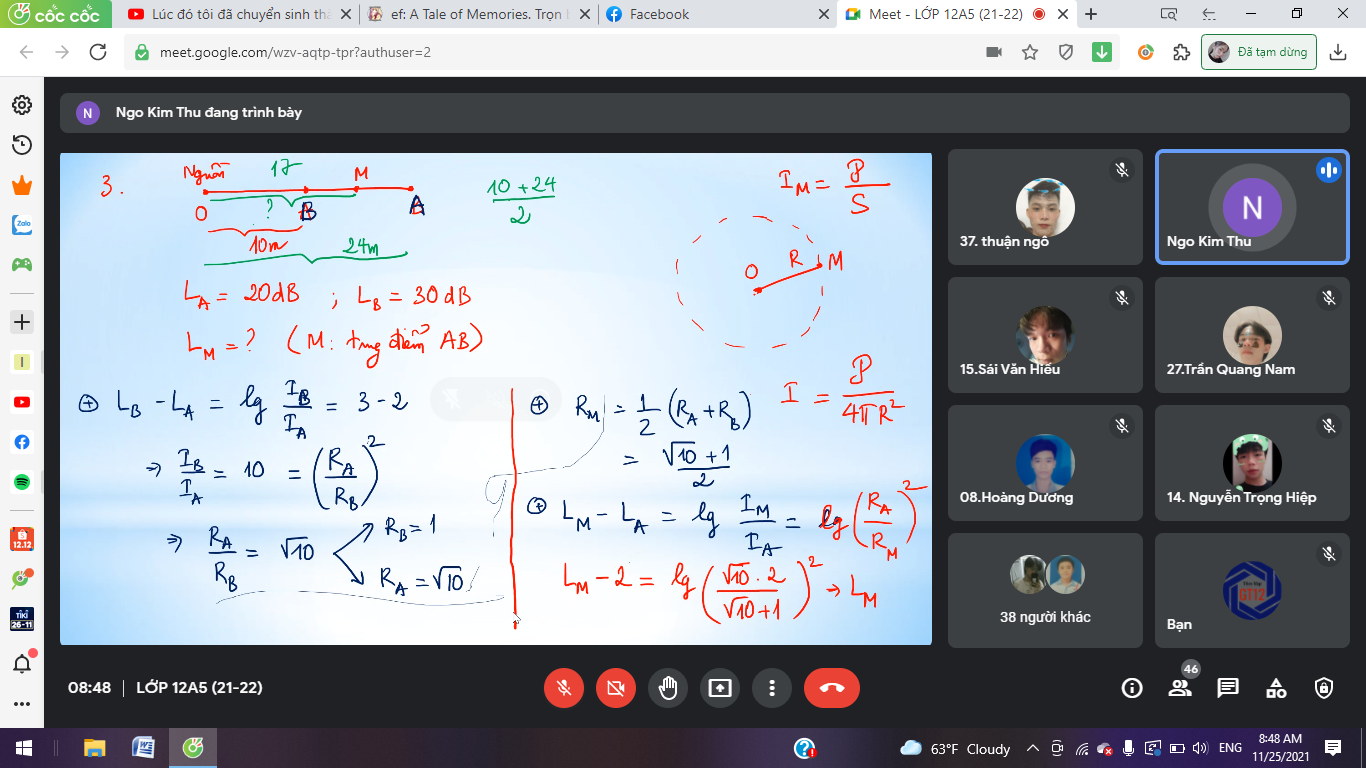 cốc cốc
Lúc đó tôi đã chuyển sinh thà
ef: A Tale of Memories. Trọn b
Facebook
Meet - LỚP 12A5 (21-22)
meet.google.com/wzv-aqtp-tpr?authuser=2
Đã tạm dừng
N Ngo Kim Thu đang trình bày
3.
Nguồn 17 M
O ? B A
10m
24m
10 + 24 / 2
I_M = P / S
O R M
L_A = 20dB ; L_B = 30dB
L_M = ? (M: trung điểm AB)
⊕ L_B - L_A = lg I_B / I_A = 3 - 2
→ I_B / I_A = 10 = (R_A / R_B)²
⇒ R_A / R_B = √10
R_B = 1
R_A = √10
⊕ R_M = 1/2 (R_A + R_B)
= √10 + 1 / 2
I = P / 4πR²
⊕ L_M - L_A = lg I_M / I_A = lg (R_A / R_M)²
L_M - 2 = lg (√10 . 2 / √10 + 1)² → L_M
37. thuận ngô
N
Ngo Kim Thu
15.Sái Văn Hiếu
27.Trần Quang Nam
08.Hoàng Dương
14. Nguyễn Trọng Hiệp
38 người khác
GT12
Bạn
Zalo
I
12.12
TIKI
26-11
08:48 | LỚP 12A5 (21-22)
46
W
63°F Cloudy
ENG
8:48 AM
11/25/2021